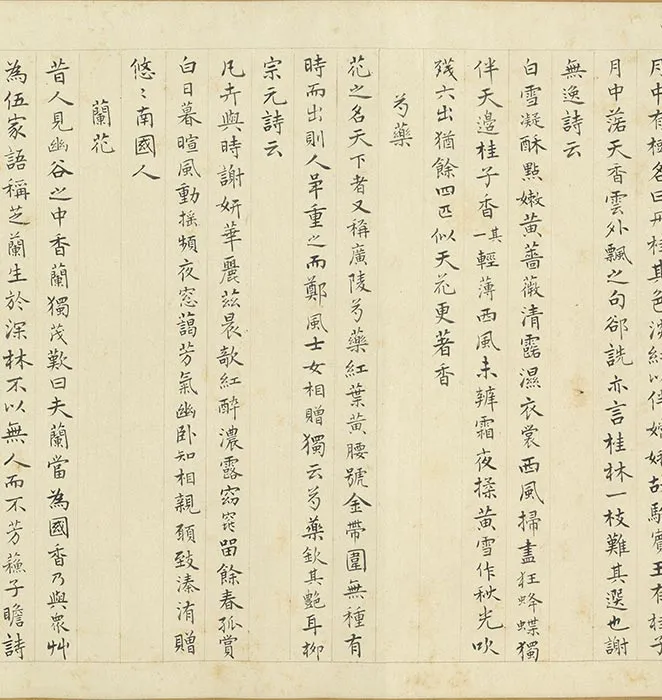 月中有樹名曰丹桂其色淡紅以伴嫦娥故駱賓王有桂子
月中落天香雲外飄之句郤詵亦言桂林一枝難其選也謝
無逸詩云
白雪凝酥點嫩黃薔薇清露濕衣裳西風掃盡狂蜂蝶獨
伴天邊桂子香其一輕薄西風未辦霜夜揉黃雪作秋光吹
殘六出猶餘四匹似天花更著香
芍藥
花之名天下者又稱廣陵芍藥紅葉黃腰號金帶圍無種有
時而出則人重之而鄭風士女相贈獨云芍藥欽其艷耳柳
宗元詩云
凡卉與時謝妍華麗茲晨欹紅醉濃露窈窕留餘春孤賞
白日暮暄風動搖頻夜窓藹芳氣幽臥知相親願致溱洧贈
悠〻南國人
蘭花
昔人見幽谷之中香蘭獨茂歎曰夫蘭當為國香乃與眾艸
為伍家語稱芝蘭生於深林不以無人而不芳蘓子瞻詩